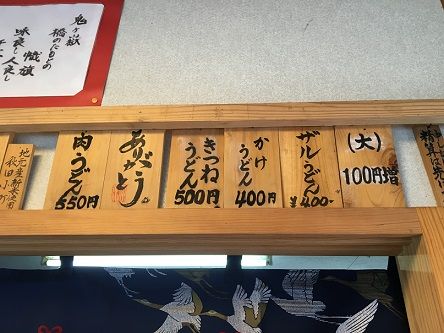 鬼ヶ嶽
橋のたもとの
幟旗
味良し人良し
(大)
100円増
ザルうどん
¥400-
かけ
うどん
400円
きつね
うどん
500円
ありがとう
肉うどん
550円
地元産新米使用
秋田小町